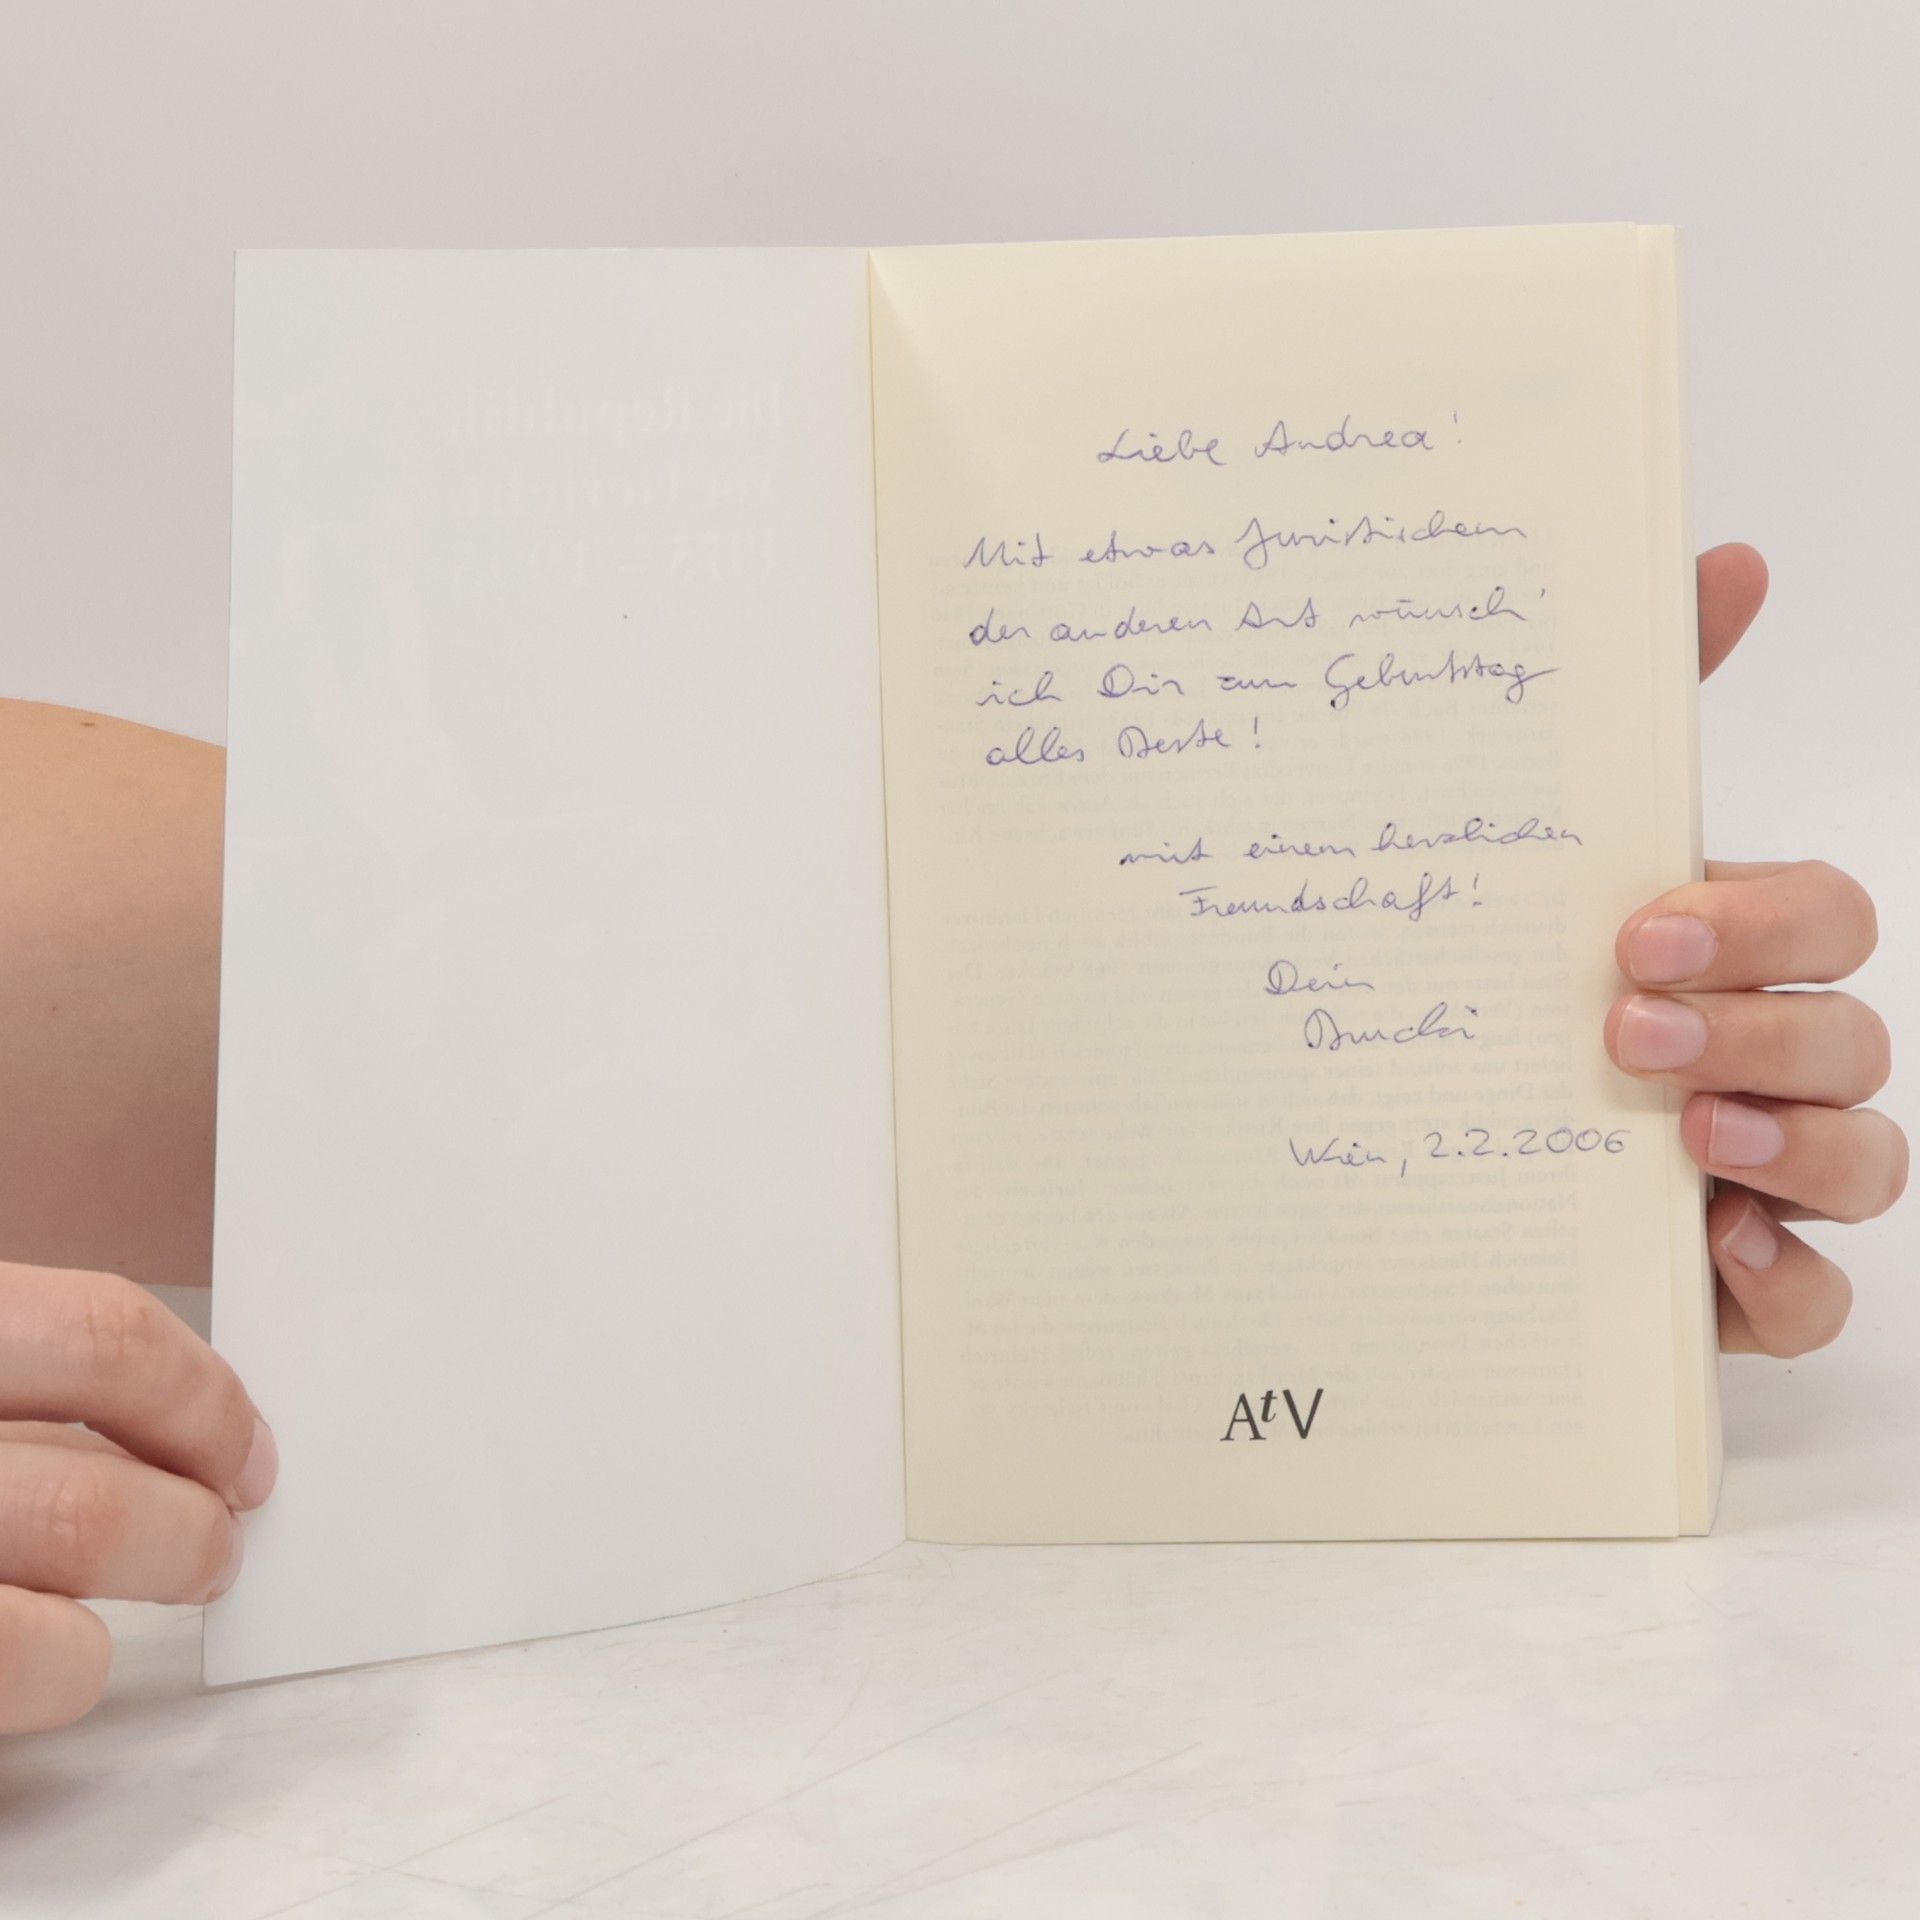 Liebe Andrea!
Mit etwas Juristischem
der anderen Art wünsch'
ich Dir zum Geburtstag
alles Beste!
mit einem herzlichen
Freundschaft!
Dein
Wien, 2.2.2006
AtV